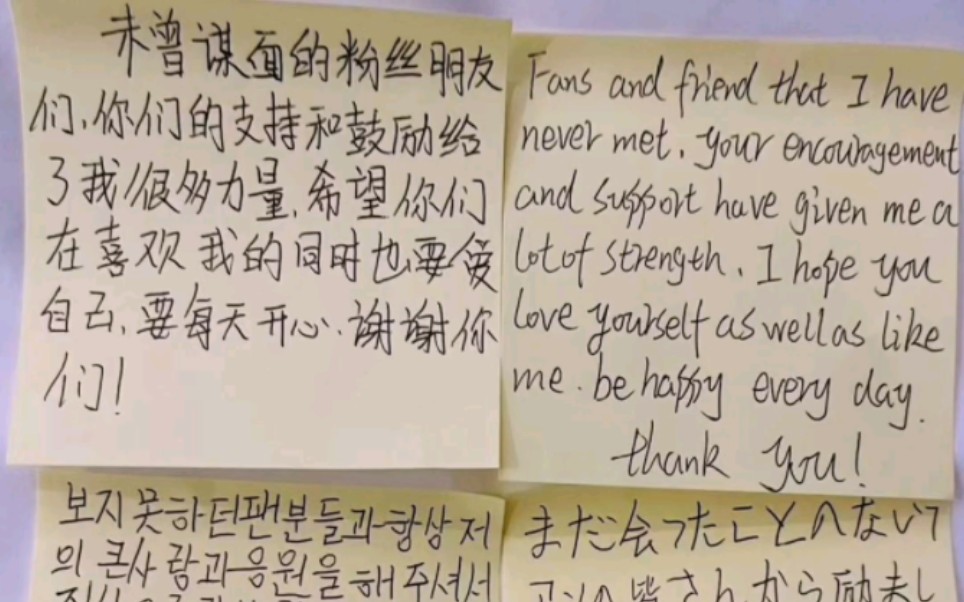 未曾谋面的粉丝朋友
们、你们的支持和鼓励给
了我很多力量、希望你们
在喜欢我的同时也要爱
自己、要每天开心、谢谢你
们!
Fans and friend that I have
never met. your encouragement
and support have given me a
lot of strength. I hope you
love yourself as well as like
me. be happy every day.
thank you!
보지 못하던팬분들과 항상 저
의 큰사랑과응원을해주셔서
まだ会ったことのないフ
ァンの皆さんから励まし